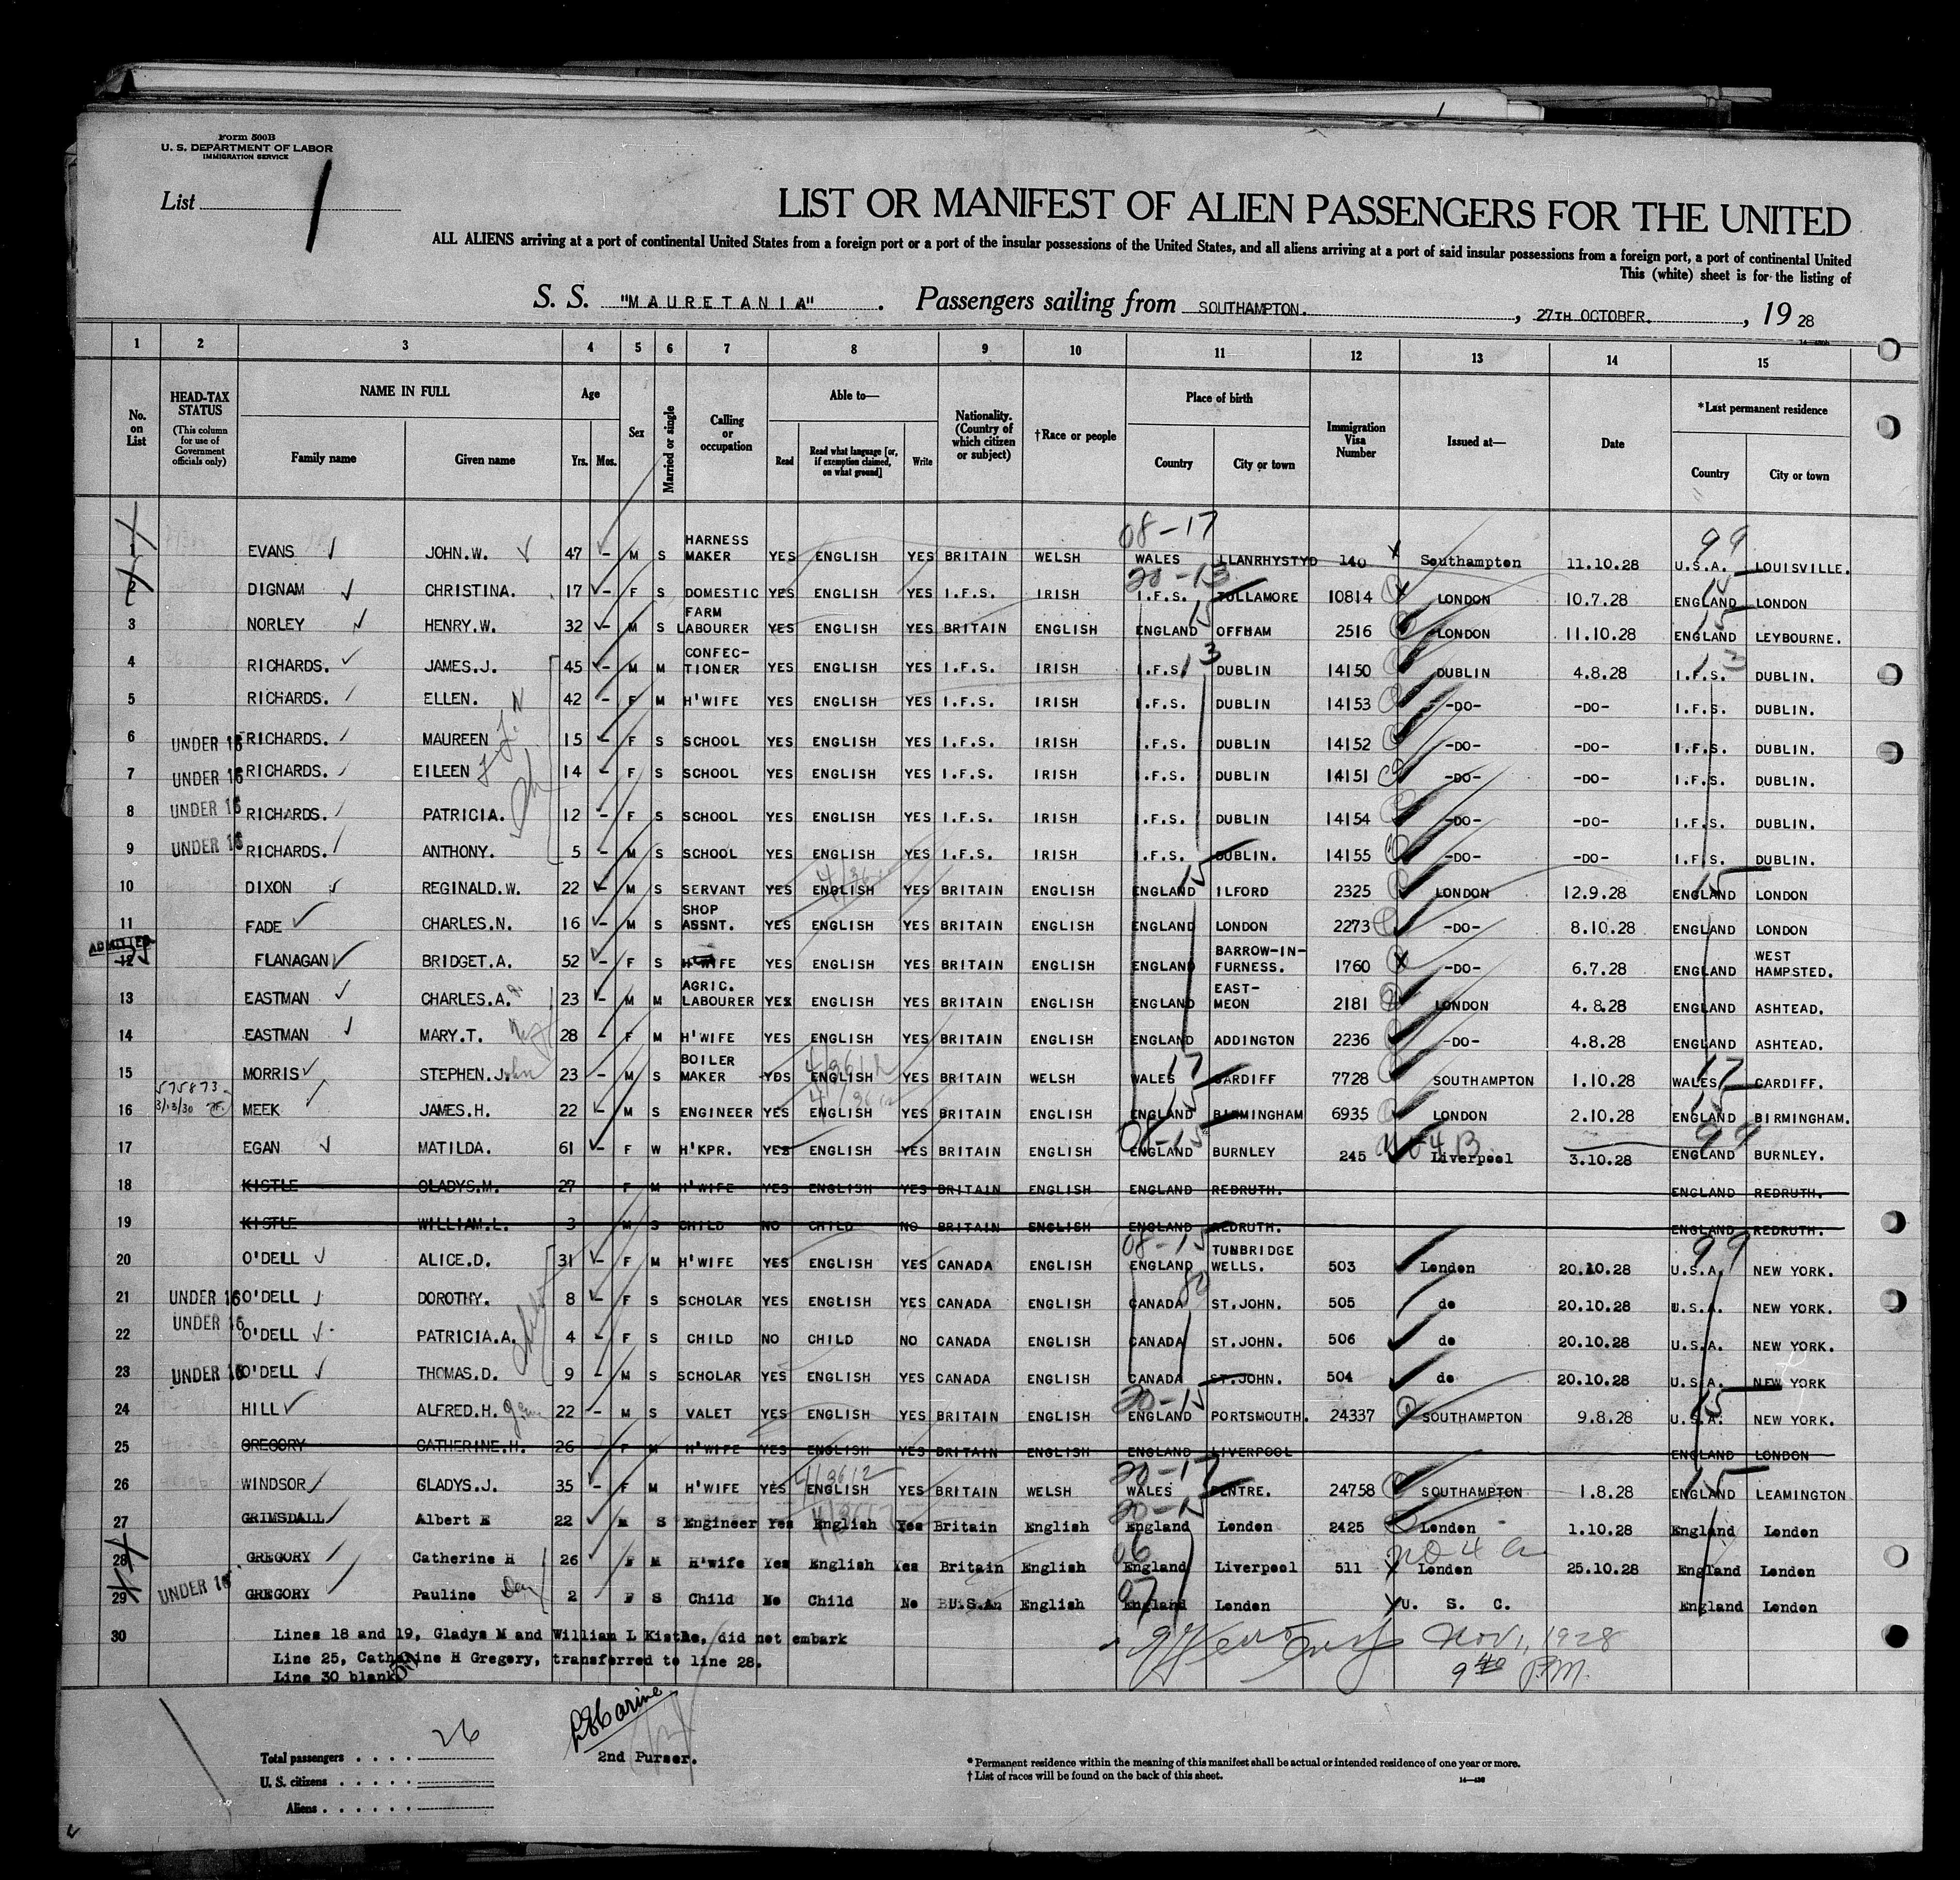 Form 500B
U. S. DEPARTMENT OF LABOR
IMMIGRATION SERVICE
List 1
LIST OR MANIFEST OF ALIEN PASSENGERS FOR THE UNITED
ALL ALIENS arriving at a port of continental United States from a foreign port or a port of the insular possessions of the United States, and all aliens arriving at a port of said insular possessions from a foreign port, a port of continental United
This (white) sheet is for the listing of
S. S. "MAURETANIA". Passengers sailing from SOUTHAMPTON., 27TH OCTOBER., 19 28
1 2 3 4 5 6 7 8 9 10 11 12 13 14 15
No. on List
HEAD-TAX STATUS (This column for use of Government officials only)
NAME IN FULL
Family name Given name
Age
Yrs. Mos.
Sex
Married or single
Calling or occupation
Able to—
Read Read what language [or, if exemption claimed, on what ground] Write
Nationality. (Country of which citizen or subject)
†Race or people
Place of birth
Country City or town
Immigration Visa Number
Issued at—
Date
*Last permanent residence
Country City or town
08-17 99
1 EVANS JOHN.W. 47 M S HARNESS MAKER YES ENGLISH YES BRITAIN WELSH WALES LLANRHYSTYD 140 Southampton 11.10.28 U.S.A. LOUISVILLE.
2 DIGNAM CHRISTINA. 17 - F S DOMESTIC YES ENGLISH YES I.F.S. IRISH I.F.S. TULLAMORE 10814 LONDON 10.7.28 ENGLAND LONDON
3 NORLEY HENRY.W. 32 - M S FARM LABOURER YES ENGLISH YES BRITAIN ENGLISH ENGLAND OFFHAM 2516 LONDON 11.10.28 ENGLAND LEYBOURNE.
4 RICHARDS. JAMES.J. 45 - M M CONFEC-TIONER YES ENGLISH YES I.F.S. IRISH I.F.S. 13 DUBLIN 14150 DUBLIN 4.8.28 I.F.S. DUBLIN.
5 RICHARDS. ELLEN. 42 - F M H'WIFE YES ENGLISH YES I.F.S. IRISH I.F.S. DUBLIN 14153 -DO- -DO- I.F.S. DUBLIN.
6 UNDER 16 RICHARDS. MAUREEN 15 - F S SCHOOL YES ENGLISH YES I.F.S. IRISH I.F.S. DUBLIN 14152 -DO- -DO- I.F.S. DUBLIN.
7 UNDER 16 RICHARDS. EILEEN 14 - F S SCHOOL YES ENGLISH YES I.F.S. IRISH I.F.S. DUBLIN 14151 -DO- -DO- I.F.S. DUBLIN.
8 UNDER 16 RICHARDS. PATRICIA. 12 - F S SCHOOL YES ENGLISH YES I.F.S. IRISH I.F.S. DUBLIN 14154 -DO- -DO- I.F.S. DUBLIN.
9 UNDER 16 RICHARDS. ANTHONY. 5 - M S SCHOOL YES ENGLISH YES I.F.S. IRISH I.F.S. DUBLIN. 14155 -DO- -DO- I.F.S. DUBLIN.
10 DIXON REGINALD.W. 22 - M S SERVANT YES ENGLISH YES BRITAIN ENGLISH ENGLAND ILFORD 2325 LONDON 12.9.28 ENGLAND LONDON
11 FADE CHARLES.N. 16 - M S SHOP ASSNT. YES ENGLISH YES BRITAIN ENGLISH ENGLAND LONDON 2273 -DO- 8.10.28 ENGLAND LONDON
ADMITTED
12 FLANAGAN BRIDGET.A. 52 - F S H'WIFE YES ENGLISH YES BRITAIN ENGLISH ENGLAND BARROW-IN-FURNESS. 1760 -DO- 6.7.28 ENGLAND WEST HAMPSTED.
13 EASTMAN CHARLES.A. 23 - M M AGRIC. LABOURER YES ENGLISH YES BRITAIN ENGLISH ENGLAND EAST-MEON 2181 LONDON 4.8.28 ENGLAND ASHTEAD.
14 EASTMAN MARY.T. 28 - F M H'WIFE YES ENGLISH YES BRITAIN ENGLISH ENGLAND ADDINGTON 2236 -DO- 4.8.28 ENGLAND ASHTEAD.
15 MORRIS STEPHEN.John 23 - M S BOILER MAKER YES ENGLISH YES BRITAIN WELSH WALES 17 CARDIFF 7728 SOUTHAMPTON 1.10.28 WALES 17 CARDIFF.
575873
3/13/30
16 MEEK JAMES.H. 22 - M S ENGINEER YES ENGLISH YES BRITAIN ENGLISH ENGLAND BIRMINGHAM 6935 LONDON 2.10.28 ENGLAND BIRMINGHAM.
17 EGAN MATILDA. 61 - F W H'KPR. YES ENGLISH YES BRITAIN ENGLISH ENGLAND BURNLEY 245 Liverpool 3.10.28 ENGLAND BURNLEY.
18 KISTLE GLADYS.M. 27 F M H'WIFE YES ENGLISH YES BRITAIN ENGLISH ENGLAND REDRUTH. ENGLAND REDRUTH.
19 KISTLE WILLIAM.L. 3 M S CHILD NO CHILD NO BRITAIN ENGLISH ENGLAND REDRUTH. ENGLAND REDRUTH.
08-15 99
20 O'DELL ALICE.D. 31 - F M H'WIFE YES ENGLISH YES CANADA ENGLISH ENGLAND TUNBRIDGE WELLS. 503 London 20.10.28 U.S.A. NEW YORK.
21 UNDER 16 O'DELL DOROTHY. 8 - F S SCHOLAR YES ENGLISH YES CANADA ENGLISH CANADA ST.JOHN. 505 do 20.10.28 U.S.A. NEW YORK.
22 UNDER 16 O'DELL PATRICIA.A. 4 - F S CHILD NO CHILD NO CANADA ENGLISH CANADA ST.JOHN. 506 do 20.10.28 U.S.A. NEW YORK.
23 UNDER 16 O'DELL THOMAS.D. 9 - M S SCHOLAR YES ENGLISH YES CANADA ENGLISH CANADA ST.JOHN. 504 do 20.10.28 U.S.A. NEW YORK
20-15 15
24 HILL ALFRED.H. 22 - M S VALET YES ENGLISH YES BRITAIN ENGLISH ENGLAND PORTSMOUTH. 24337 SOUTHAMPTON 9.8.28 U.S.A. NEW YORK.
25 GREGORY CATHERINE.H. 26 F M H'WIFE YES ENGLISH YES BRITAIN ENGLISH ENGLAND LIVERPOOL ENGLAND LONDON
20-17 15
26 WINDSOR GLADYS.J. 35 - F M H'WIFE YES ENGLISH YES BRITAIN WELSH WALES PENTRE. 24758 SOUTHAMPTON 1.8.28 ENGLAND LEAMINGTON
20-15
27 GRIMSDALL Albert E 22 M S Engineer Yes English Yes Britain English England London 2425 London 1.10.28 England London
28 GREGORY Catherine H 26 F M H'wife Yes English Yes Britain English England Liverpool 511 London 25.10.28 England London
29 UNDER 16 GREGORY Pauline 2 F S Child No Child No U.S.A English England London U. S. C. England London
30 Lines 18 and 19, Gladys M and William L Kistle, did not embark
Line 25, Catherine H Gregory, transferred to line 28.
Line 30 blank
Nov 1, 1928
9 40 P.M.
Total passengers . . . . 26
U. S. citizens . . . . .
Aliens . . . . . .
2nd Purser.
* Permanent residence within the meaning of this manifest shall be actual or intended residence of one year or more.
† List of races will be found on the back of this sheet.